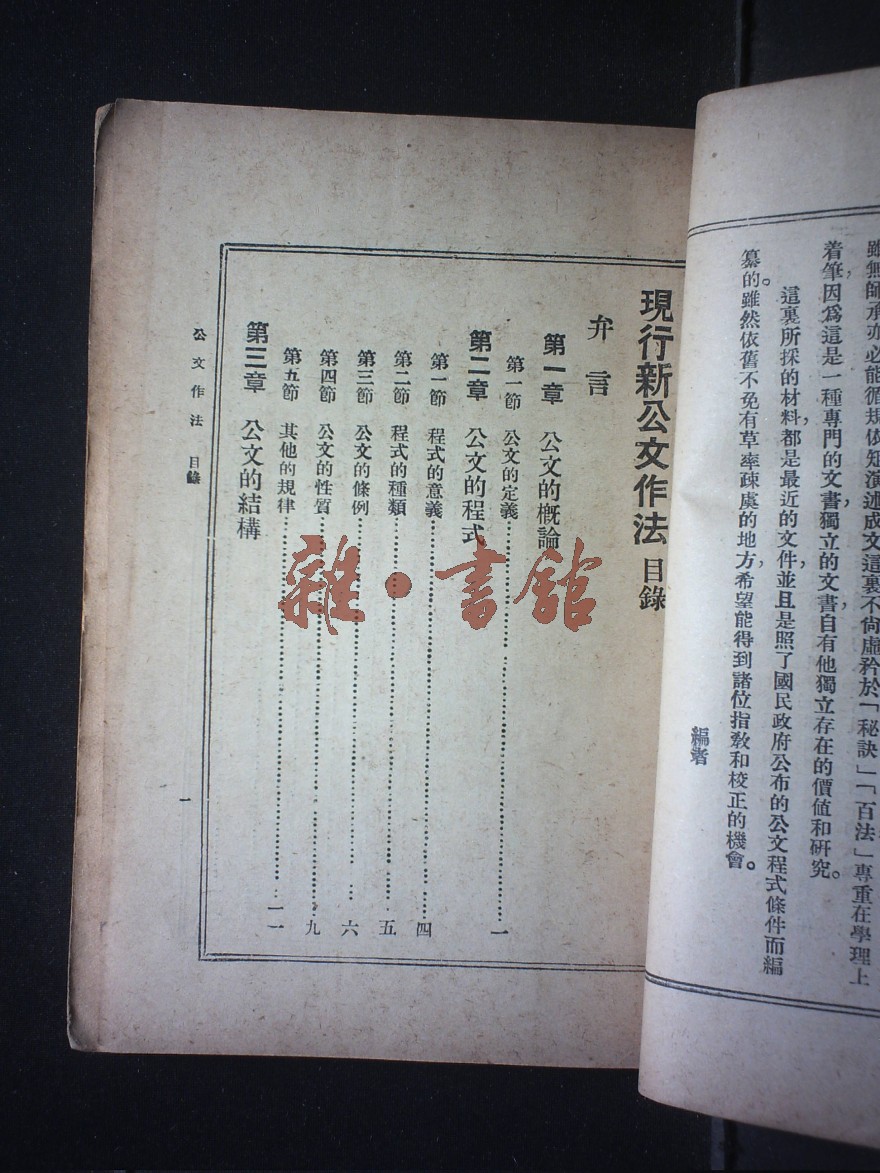 雖無師承亦必能循規依矩演述成文這裏不尙虛矜於「秘訣」「百法」專重在學理上
着筆，因爲這是一種專門的文書，獨立的文書，自有他獨立存在的價値和研究。
這裏所採的材料，都是最近的文件，並且是照了國民政府公布的公文程式條件而編
纂的。雖然依舊不免有草率疎虞的地方，希望能得到諸位指敎和校正的機會。
編者
現行新公文作法 目錄
弁言
第一章 公文的槪論
第一節 公文的定義……一
第二章 公文的程式
第一節 程式的意義……四
第二節 程式的種類……五
第三節 公文的條例……六
第四節 公文的性質……九
第五節 其他的規律……一一
第三章 公文的結構
公文作法 目錄
一
雜·書館